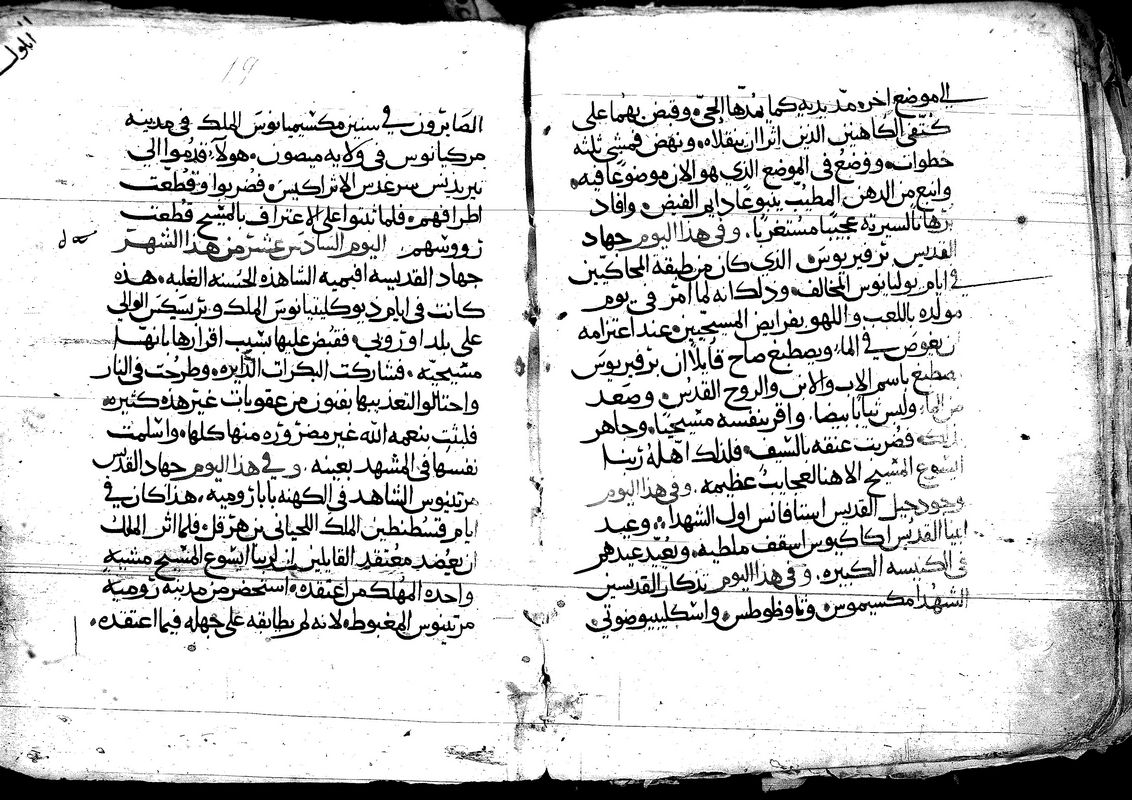 الى موضع اخره مد يديه كما يمدها الحي، وقبض بهما على
كتفي الكاهنين الذين اثرا ان ينقلاه، ونهض فمشى ثلثه
خطوات، ووضع في الموضع الذي هو الان موضوعا فيه،
وانبع من الدهن المطيب ينبوعا دايم الفيض، وافاد
برهانا لسيرته عجيبا مستغربا، وفي هذا اليوم جهاد
القديس برفيريوس الذي كان من طبقه المحاكيين
في ايام يوليانوس المخالف، وذلك انه لما امر في يوم
مولده باللعب واللهو بفرايض المسيحيين، عند اعتزامه
ان يغوص في الماء ويصطبغ صاح قايلا ان برفيريوس
يصطبغ باسم الاب والابن والروح القدس، وصعد
من الماء ولبس ثيابا بيضا، واقر بنفسه مسيحيا، وجاهر
بذلك فضربت عنقه بالسيف، فلذلك اهله ربنا
ايسوع المسيح الاهنا لعجايب عظيمه، وفي هذا اليوم
وجود جبل القديس استافانس اول الشهدا، وعيد
ابينا القديس اكاكيوس اسقف ملطيه، ويعيد عيدهم
في الكنيسه الكبيره، وفي هذا اليوم تذكار القديسين
الشهدا مكسيموس وثاوظوطس واسكليبيوضوتي
ايلول
19
الصايرون في سنين مكسيميانوس الملك في مدينه
مركيانوس في ولايه ميصون، هولا قدموا الى
تيريدس الاتراكيس، فضربوا وقطعت
اطرافهم، فلما ثبتوا على الاعتراف بالمسيح قطعت
رووسهم اليوم السادس عشر من هذا الشهر
جهاد القديسه افيميه الشاهده الحسنه الغلبه، هذه
كانت في ايام ديوكليتيانوس الملك وبرسكس الوالي
على بلد اوروبي، فقبض عليها بسبب اقرارها بانها
مسيحيه، فشاركت البكرات الدايره، وطرحت في النار
واحتالوا لتعذيبها بفنون من عقوبات غير هذه كثيره
فلبثت بنعمه الله غير مضروره منها كلها، واسلمت
نفسها في المشهد بعينه، وفي هذا اليوم جهاد القديس
مرتينوس الشاهد في الكهنه بابا روميه، هذا كان في
ايام قسطنطين الملك اللحياني بن هرقل، فلما اثر الملك
ان يعضد معتقد القايلين ان لربنا ايسوع المسيح مشيه
واحده المهلك من اعتقده، استحضر من مدينه روميه
مرتينوس المغبوط، لانه لم يطابقه على جهله فيما اعتقده،